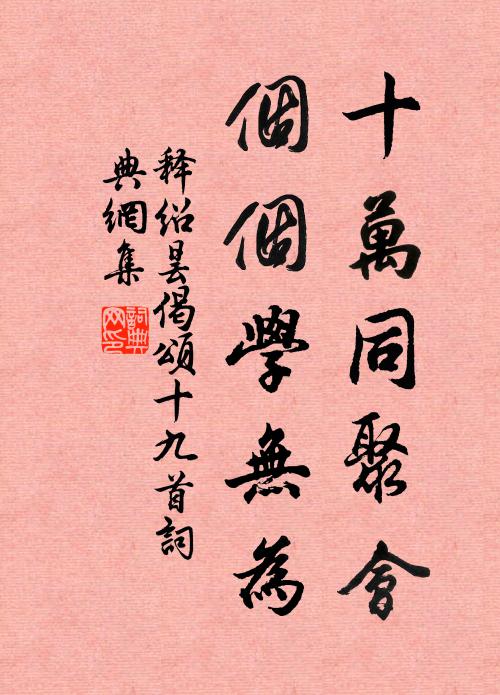 十萬同聚會
個個學無為
释绍昙偈頌十九首詞
典網集
詞典
网印